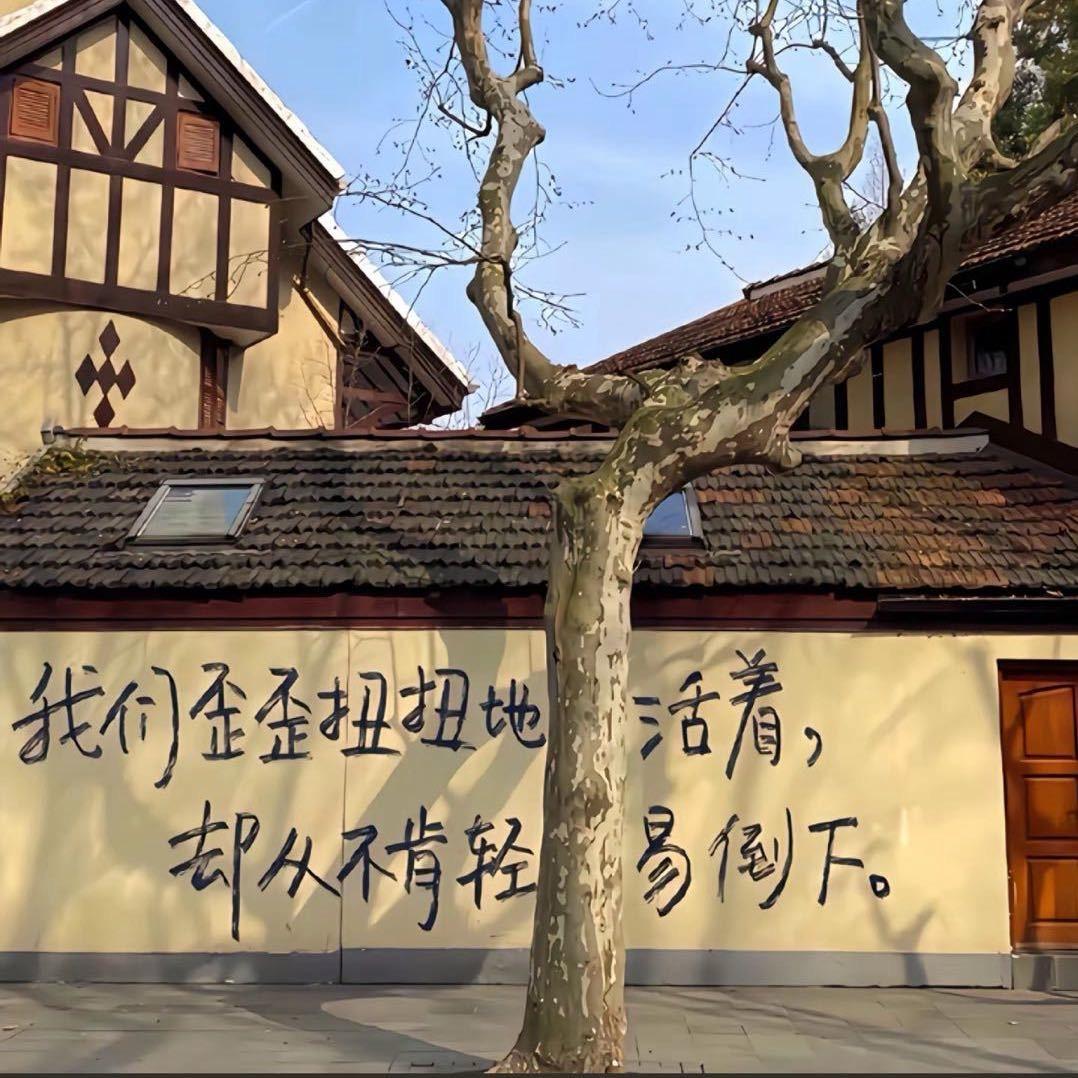 我们歪歪扭扭地活着,
却从不肯轻易倒下。